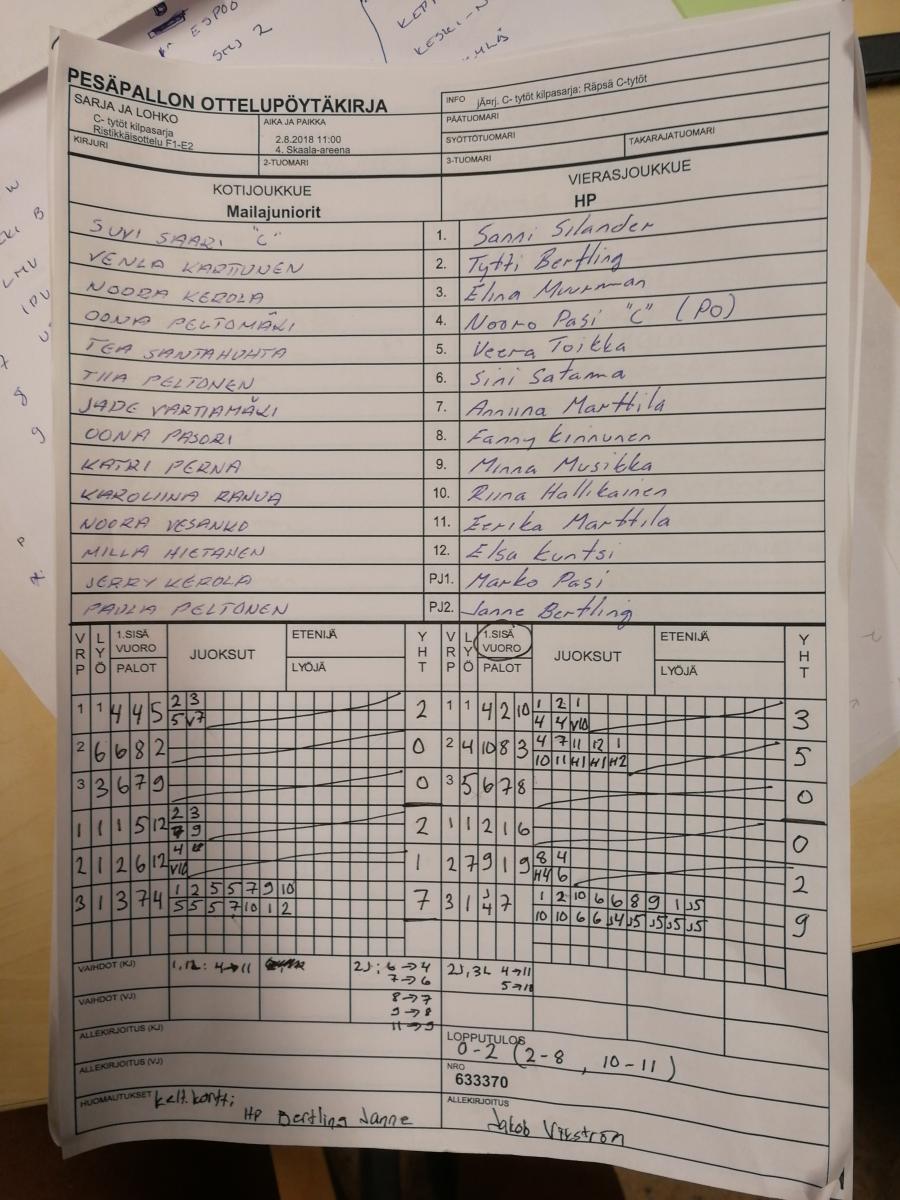 ESPOO
PESÄPALLON OTTELUPÖYTÄKIRJA
SARJA JA LOHKO
C- tytöt kilpasarja
Ristikkäisottelu F1-E2
AIKA JA PAIKKA
2.8.2018 11:00
4. Skaala-areena
KIRJURI
2-TUOMARI
INFO jÄ¤rj. C- tytöt kilpasarja: Räpsä C-tytöt
PÄÄTUOMARI
SYÖTTÖTUOMARI
TAKARAJATUOMARI
3-TUOMARI
KOTIJOUKKUE VIERASJOUKKUE
Mailajuniorit HP
SUVI SAARI "C" 1. Sanni Silander
VENLA KARTTUNEN 2. Tytti Bertling
NOORA KEROLA 3. Elina Muurman
OONA PELTOMÄKI 4. Nooro Pasi "C" (PO)
TEA SANTAHUHTA 5. Veera Toikka
TIIA PELTONEN 6. Sini Satama
JADE VARTIAMÄKI 7. Anniina Marttila
OONA PASORI 8. Fanny Kinnunen
KATRI PERNA 9. Minna Musikka
KAROLIINA RANUA 10. Riina Hallikainen
NOORA VESANKO 11. Eerika Marttila
MILLA HIETANEN 12. Elsa Kuntsi
JERRY KEROLA PJ1. Marko Pasi
PAULIA PELTONEN PJ2. Janne Bertling
VRP LYÖ 1.SISÄ VUORO PALOT JUOKSUT ETENIJÄ LYÖJÄ YHT VRP LYÖ 1.SISÄ VUORO PALOT JUOKSUT ETENIJÄ LYÖJÄ YHT
2 3 1 2 1
1 1 4 4 5 5 V7 2 1 1 4 2 10 4 4 V10 3
4 7 11 12 1
2 6 6 8 2 0 2 4 10 8 3 10 11 H1 H1 H2 5
3 3 6 7 9 0 3 5 6 7 8 0
2 3
1 1 1 5 12 7 9 2 1 1 2 1 6 0
4 8 4
2 1 2 6 12 V10 1 2 7 9 1 9 H4 6 2
1 2 5 5 7 9 10 1 2 10 6 6 8 9 1 J5
3 1 3 7 4 5 5 5 7 10 1 2 7 3 1 J4 7 10 10 6 6 J4 J5 J5 J5 J5 9
VAIHDOT (KJ) 1,12: 4→11 2J; 6→4 2J, 3L 4→11
7→6
VAIHDOT (VJ) 8→7
9→8
11→9
ALLEKIRJOITUS (KJ)
LOPPUTULOS
0-2 (2-8, 10-11)
ALLEKIRJOITUS (VJ)
NRO
633370
HUOMAUTUKSET kelt.kortti
HP Bertling Janne
ALLEKIRJOITUS
Jakob Vikström